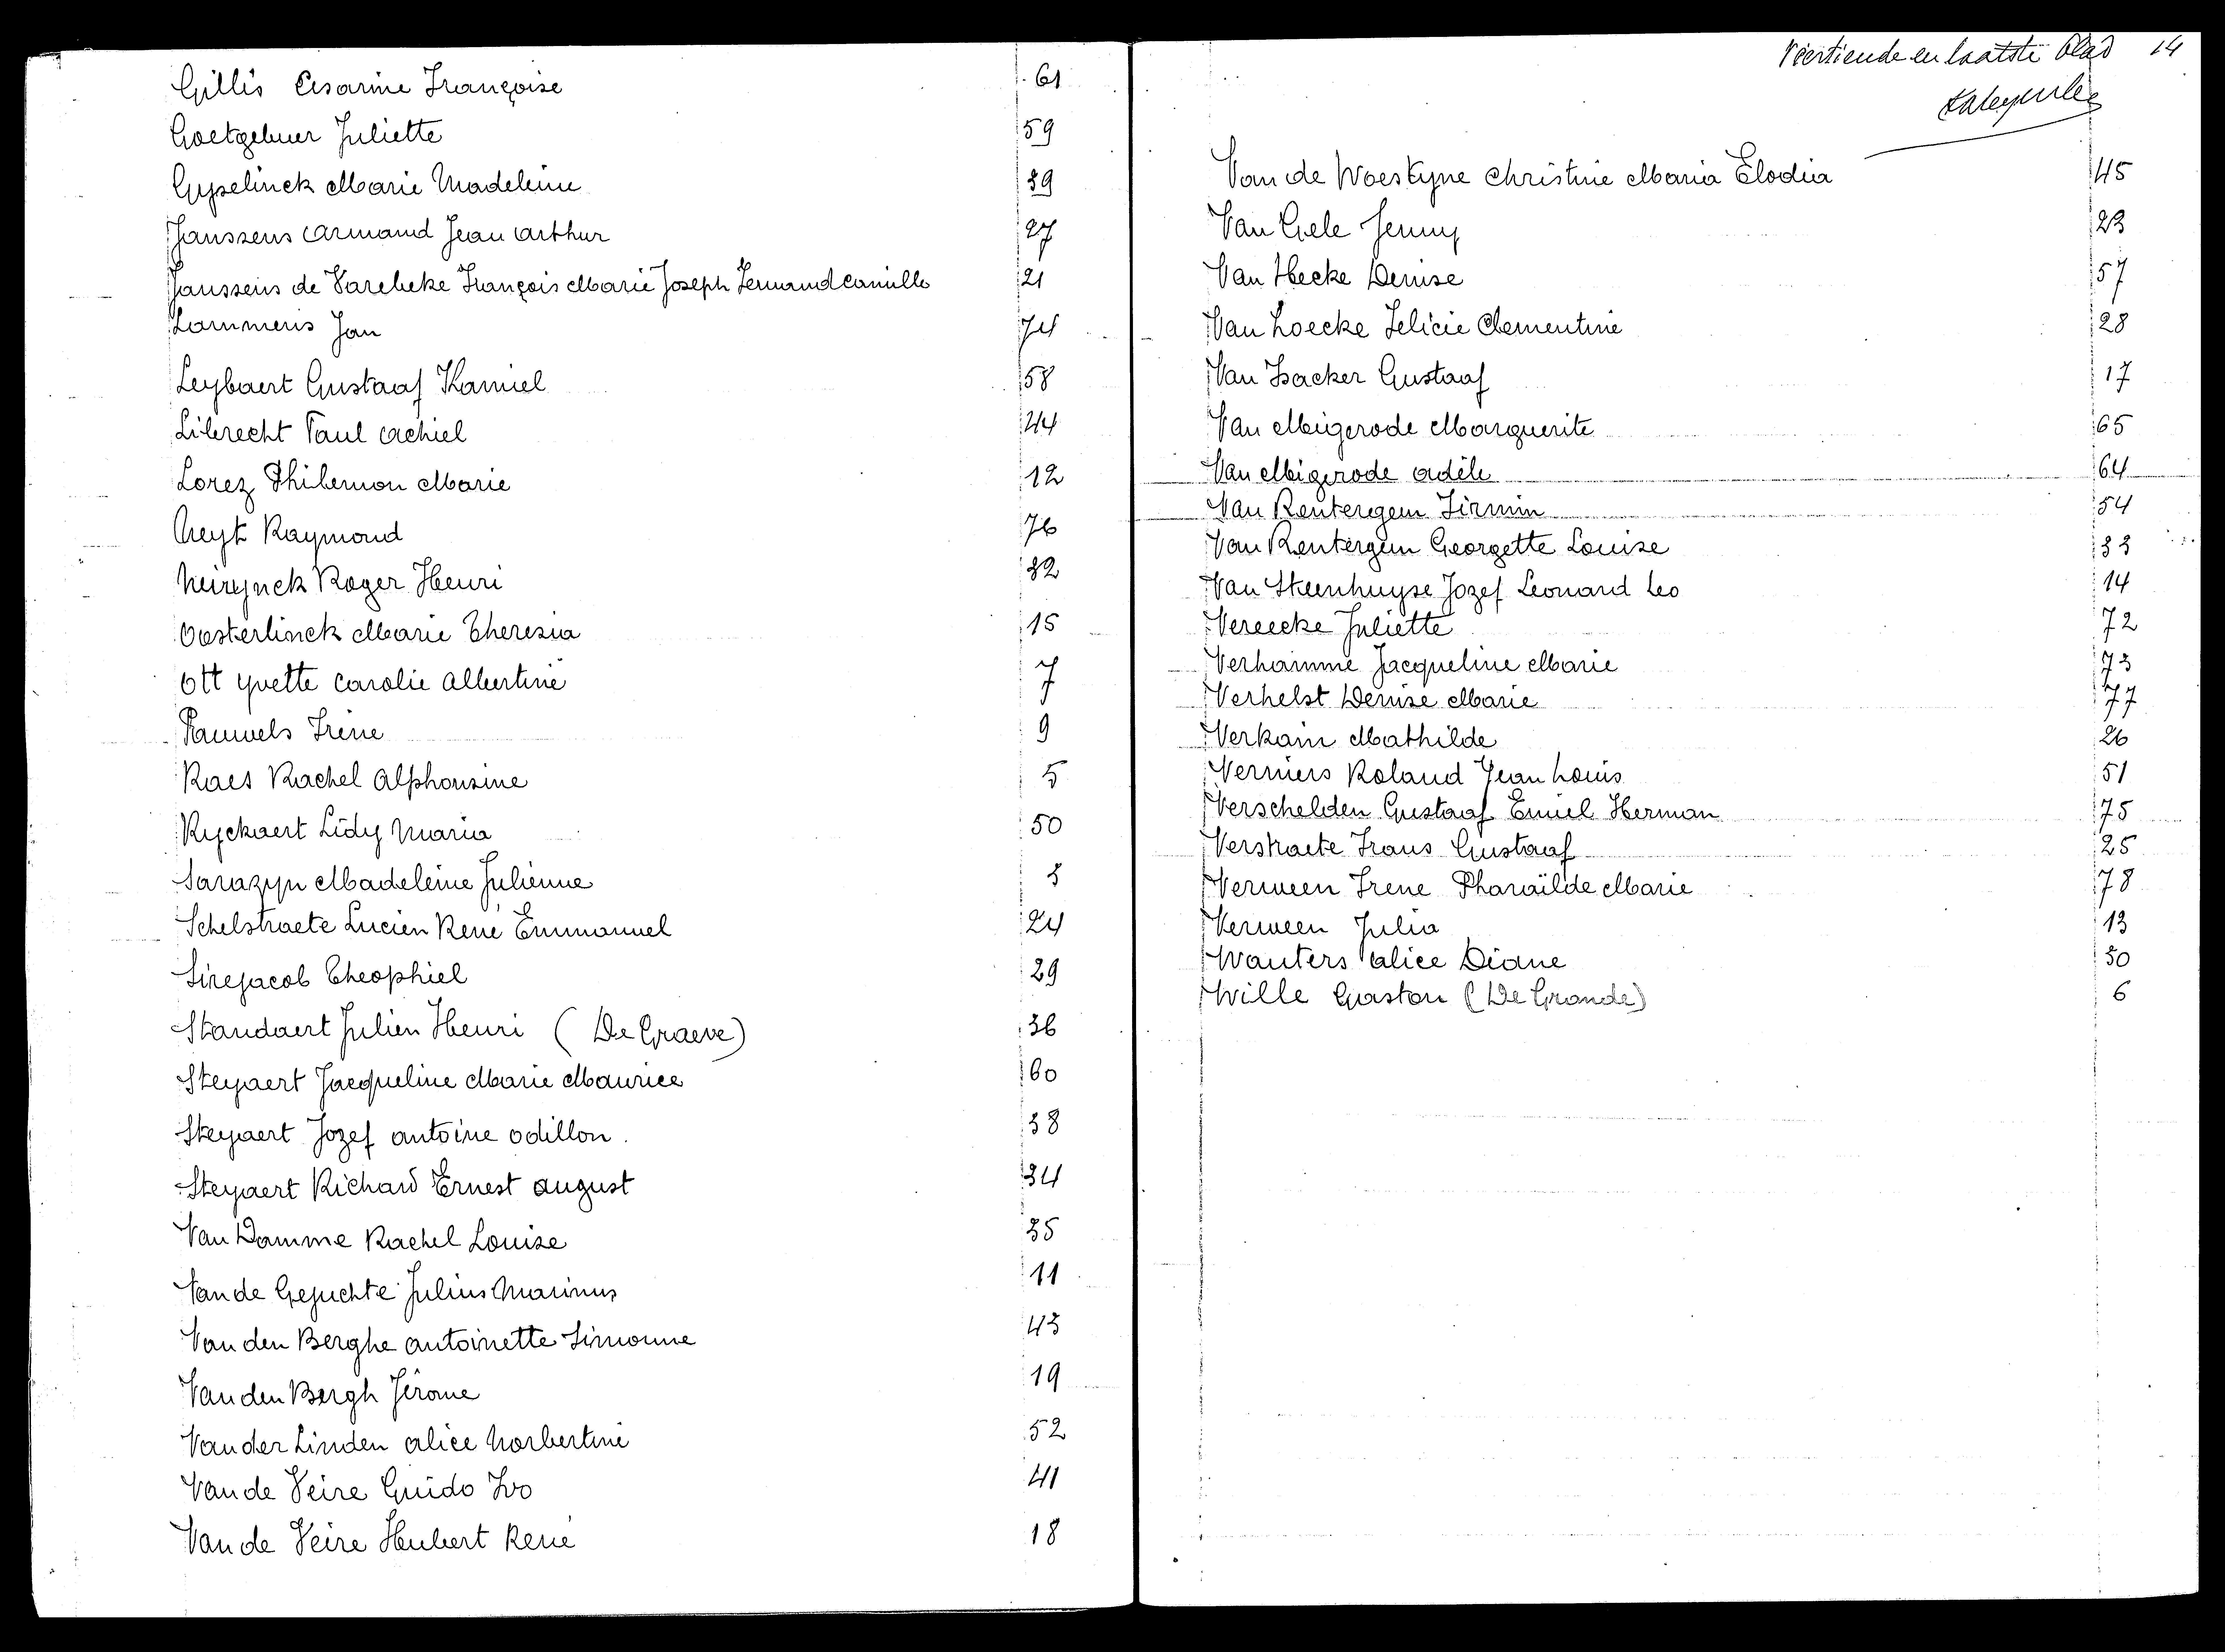 Gillis Cesarine Françoise 61
Goetgeluer Juliette 59
Gyselinck Marie Madeleine 39
Janssens Armand Jean Arthur 27
Janssens de Varebeke François Marie Joseph Fernand Camille 21
Lammens Jan 74
Leybaert Gustaaf Kamiel 58
Librecht Paul Achiel 44
Lorez Philemon Marie 12
Neyt Raymond 76
Neirynck Roger Henri 32
Oosterlinck Marie Theresia 15
Ott Yvette Carolie Albertine 7
Pauwels Irène 9
Raes Rachel Alphonsine 5
Ryckaert Lidy Maria 50
Sarazyn Madeleine Julienne 3
Schelstraete Lucien René Emmanuel 24
Sirejacob Theophiel 29
Standaert Julien Henri (De Graeve) 36
Steyaert Jacqueline Marie Maurice 60
Steyaert Jozef Antoine Odillon. 38
Steyaert Richard Ernest August 34
Van Damme Rachel Louise 35
Van de Gejuchte Julius Marinus 11
Van den Berghe Antoinette Simonne 43
Van den Bergh Jérome 19
Van der Linden Alice Norbertine 52
Van de Veire Guido Ivo 41
Van de Veire Hubert René 18
Veertiende en laatste blad 14
Van de Woestyne Christine Maria Elodia 45
Van Gele Jenny 23
Van Hecke Denise 57
Van Loecke Felicie Clementine 28
Van Isacker Gustaaf 17
Van Meigerode Marguerite 65
Van Migerode Adèle 64
Van Renteregem Firmin 54
Van Rentergem Georgette Louise 33
Van Steenhuyse Jozef Leonard Leo 14
Vereecke Juliette 72
Verhamme Jacqueline Marie 73
Verhelst Denise Marie 77
Verkain Mathilde 26
Verniers Roland Jean Louis 51
Verschelden Gustaaf Emiel Herman 75
Verstraete Frans Gustaaf 25
Verween Irene Pharaïlde Marie 78
Verween Julia 13
Wauters Alice Diane 30
Wille Gaston (De Grande) 6